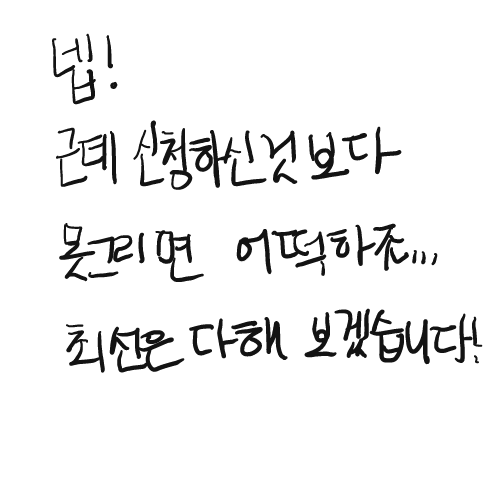 넵!
근데 신청하신것보다
못그리면 어떡하죠...
최선은 다해 보겠습니다!